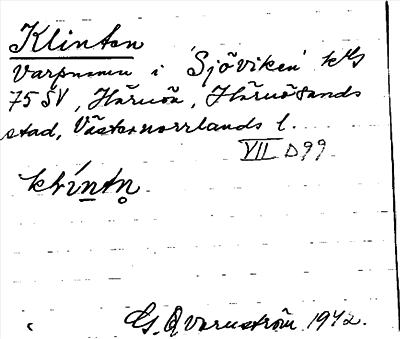 Klinten
Varpnamn i 'Sjöviken' kbl
75 SV, Härnön, Härnösands
stad, Västernorrlands l.
VII D99
klíntn̥
G. Qvarnström 1942.